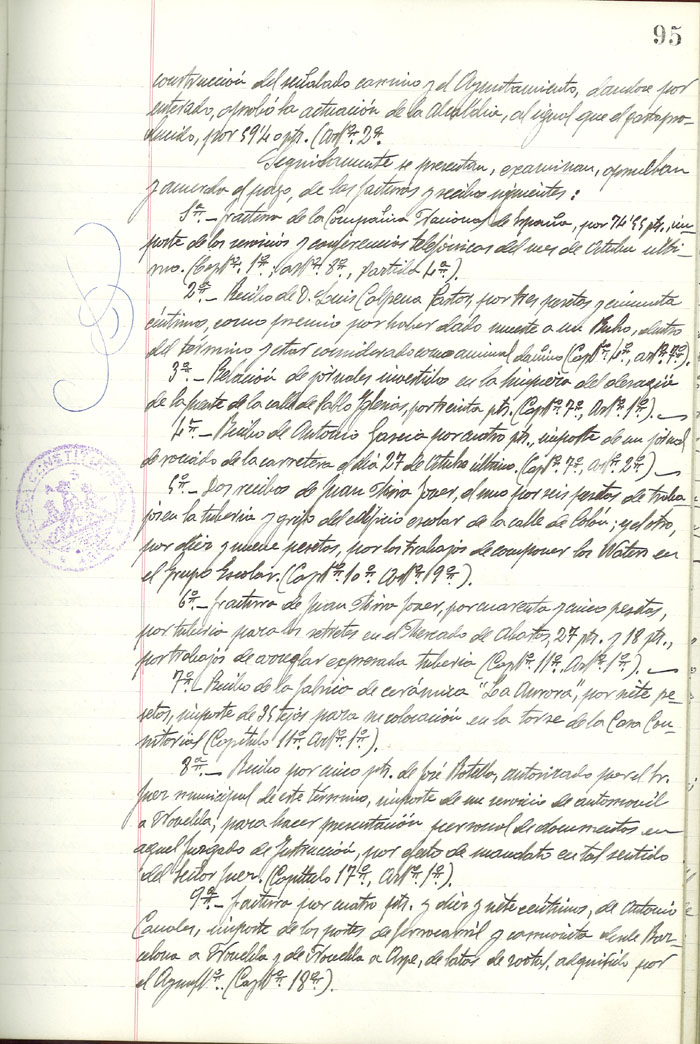 95
construcción del señalado camino y el Ayuntamiento, dandose por
enterado, aprobó la actuación de la Alcaldia, al igual que el gasto pro-
ducido, por 59'40 pts. (Artº. 2º.
Seguidamente se presentan, examinan, aprueban
y acuerda el pago, de las facturas y recibos siguientes:
1ª.- Factura de la Compañia Nacional de España, por 74'55 pts., im-
porte de los servicios y conferencias telefónicas del mes de Octubre ulti-
mo. (Captº. 1º., artº. 8º., Partida 4ª.).
2º.- Recibo de D. Luis Calpena Pastor, por tres pesetas y cincuenta
céntimos, como premio por haber dado muerte a un Buho, dentro
del término y estar considerado como animal dañino (Captº. 4º., artº. 7º.).
3º.- Relación de jornales invertidos en la limpieza del desagüe
de la parte de la calle de Pablo Iglesias, por treinta pts. (Captº. 7º., Artº. 1º.).
4º.- Recibo de Antonio Garcia por cuatro pts., importe de un jornal
de rociado de la carretera el dia 27 de Octubre último. (Captº. 7º., Artº. 2º.)
5º.- Dos recibos de Juan Mira Jover, el uno por seis pesetas de traba-
jos en la tuberia y grifo del edificio escolar de la calle de Colón; y el otro,
por diez y nueve pesetas, por los trabajos de componer los Waters en
el Grupo Escolar. (Captº. 10º. Artº. 19º.).
6º.- Factura de Juan Mira Jover, por cuarenta y cinco pesetas,
por tuberia para los retretes en el Mercado de Abastos, 27 pts. y 18 pts.,
por trabajos de arreglar expresada tuberia (Captº. 11º. Artº. 1º.).
7º.- Recibo de la fabrica de cerámica "La Aurora", por siete pe-
setas, importe de 35 tejas para su colocación en la torre de la Casa Con-
sistorial (Capítulo 11º. Artº. 1º.).
8º.- Recibo por cinco pts. de José Botella, autorizado por el Sr.
Juez municipal de este término, importe de un servicio de automovil
a Novelda, para hacer presentación personal de documentos en
aquel Juzgado de Instrucción, por efecto de mandato en tal sentido
del Señor Juez. (Capítulo 17º., Artº. 1º.).
9º.- Factura por cuatro pts. y diez y siete céntimos, de Antonio
Canales, importe de los portes de ferrocarril y camioneta desde Bar-
celona a Novelda y de Novelda a Aspe, de latas de adquirido por
el Ayuntº. (Captº. 18º.).